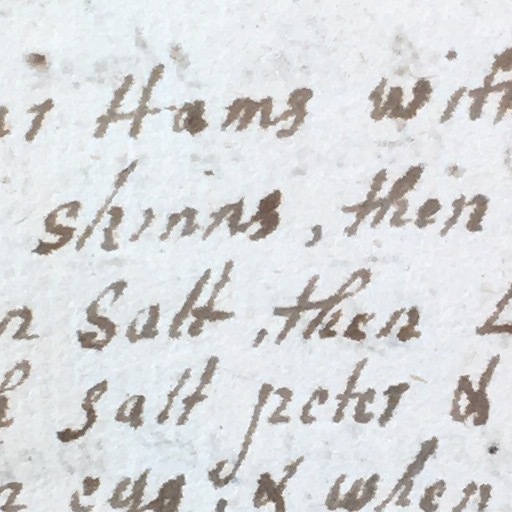 Hams with
skinns, then
Salt, then
salt peter &
egg, & when